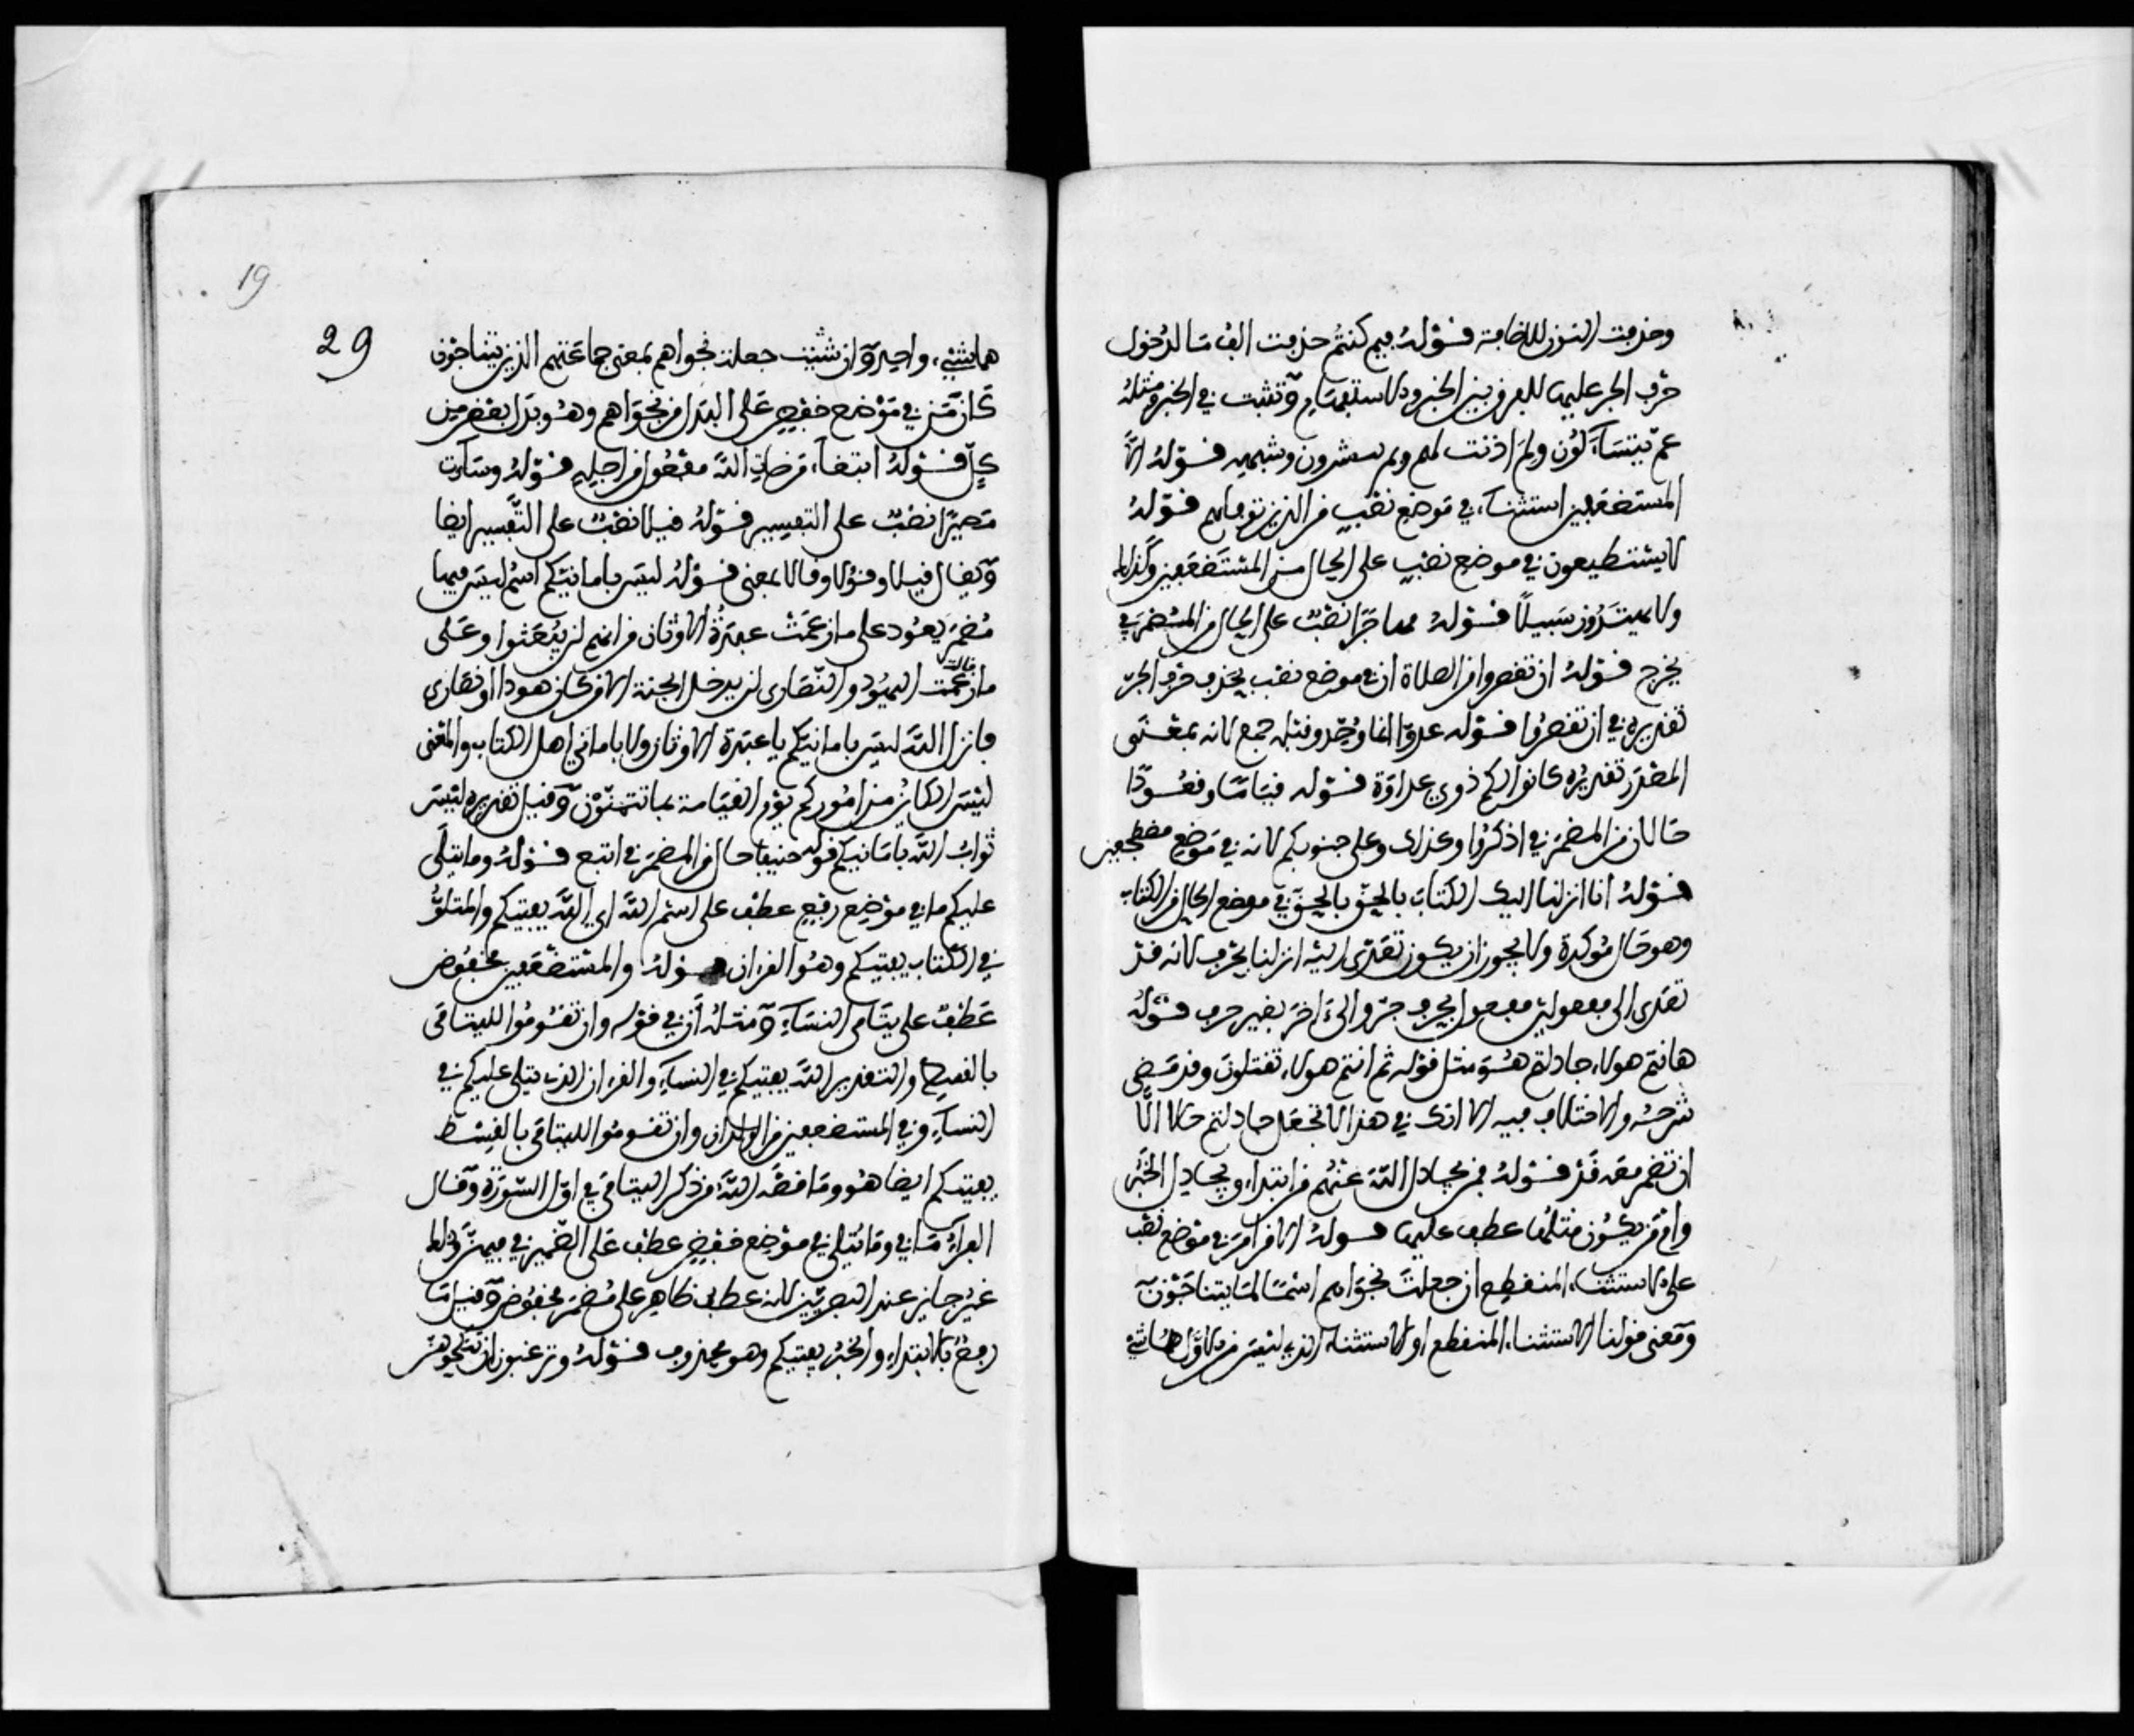 وحذفت النون للاضافة قوله فيم كنتم حذفت الف ما لدخول
حرف الجر عليها للفرق بين الخبر والاستفهام وتثبت في الخبر ومثله
عم يتساءلون ولم اذنت لهم وبم تبشرون وشبهه قوله الا
المستضعفين استثناء في موضع نصب من الذين توفاهم قوله
لا يستطيعون في موضع نصب على الحال من المستضعفين وكذلك
ولا يهتدون سبيلا قوله مهاجرا نصب على الحال من المضمر في
يخرج قوله ان تقصروا من الصلاة ان في موضع نصب بحذف حرف الجر
تقديره في ان تقصروا قوله عدوا انما وحد وقبله جمع لانه بمعنى
المصدر تقديره كانوا لكم ذوي عداوة قوله قياما وقعودا
حالان من المضمر في اذكروا وكذلك وعلى جنوبكم لانه في موضع مضطجعين
قوله انا انزلنا اليك الكتاب بالحق بالحق في موضع الحال من الكتاب
وهو حال مؤكدة ولا يجوز ان يكون تعدى اليه انزلنا بحرف لانه قد
تعدى الى مفعولين مفعول بحرف جر والى اخر بغير حرف قوله
هانتم هولاء جادلتم هو مثل قوله ثم انتم هولاء تقتلون وقد مضى
شرحه والاختلاف فيه الا انك في هذا لا تجعل جادلتم حالا الا
ان تضمر معه قد قوله فمن يجادل الله عنهم من ابتداء ويجادل الخبر
وام من يكون مثلها عطف عليها قوله الا من امر من في موضع نصب
على الاستثناء المنقطع ان جعلت نجواهم اسما لما يتناجون
ومعنى قولنا الاستثناء المنقطع او الاستثناء الذي ليس من الاول هما شيء
19
29
هما شيء واحد وان شئت جعلت نجواهم بمعنى جماعتهم الذين يتناجون
كان من في موضع خفض على البدل من نجواهم وهو بدل بعض من
كل قوله ابتغاء مرضات الله مفعول من اجله قوله وساءت
مصيرا نصب على التفسير قوله قيلا نصب على التفسير ايضا
ويقال قيلا وقولا وقالا بمعنى قوله ليس بامانيكم اسم ليس فيها
مضمر يعود على ما زعمت عبدة الاوثان من انهم لن يبعثوا وعلى
ما قالت اليهود والنصارى لن يدخل الجنة الا من كان هودا او نصارى
فانزل الله ليس بامانيكم يا عبدة الاوثان ولا باماني اهل الكتاب والمعنى
ليس الكائن من اموركم يوم القيامة بما تتمنون وقيل تقديره ليس
ثواب الله بامانيكم قوله حنيفا حال من المضمر في اتبع قوله وما يتلى
عليكم ما في موضع رفع عطف على اسم الله اي الله يفتيكم والمتلو
في الكتاب يفتيكم وهو القران قوله والمستضعفين مخفوض
عطف على يتامى النساء ومثله ان في قوله وان تقوموا لليتامى
بالقسط والتقدير الله يفتيكم في النساء والقران الذي يتلى عليكم في
النساء وفي المستضعفين من الولدان وان تقوموا لليتامى بالقسط
يفتيكم ايضا هو وما قصه الله من ذكر اليتامى في اول السورة وقال
الفراء ما في وما يتلى في موضع خفض عطف على الضمير في فيهن وذلك
غير جائز عند البصريين لانه عطف ظاهر على مضمر مخفوض وقيل ما
رفع بالابتداء والخبر يفتيكم وهو محذوف قوله وترغبون ان تنكحوهن